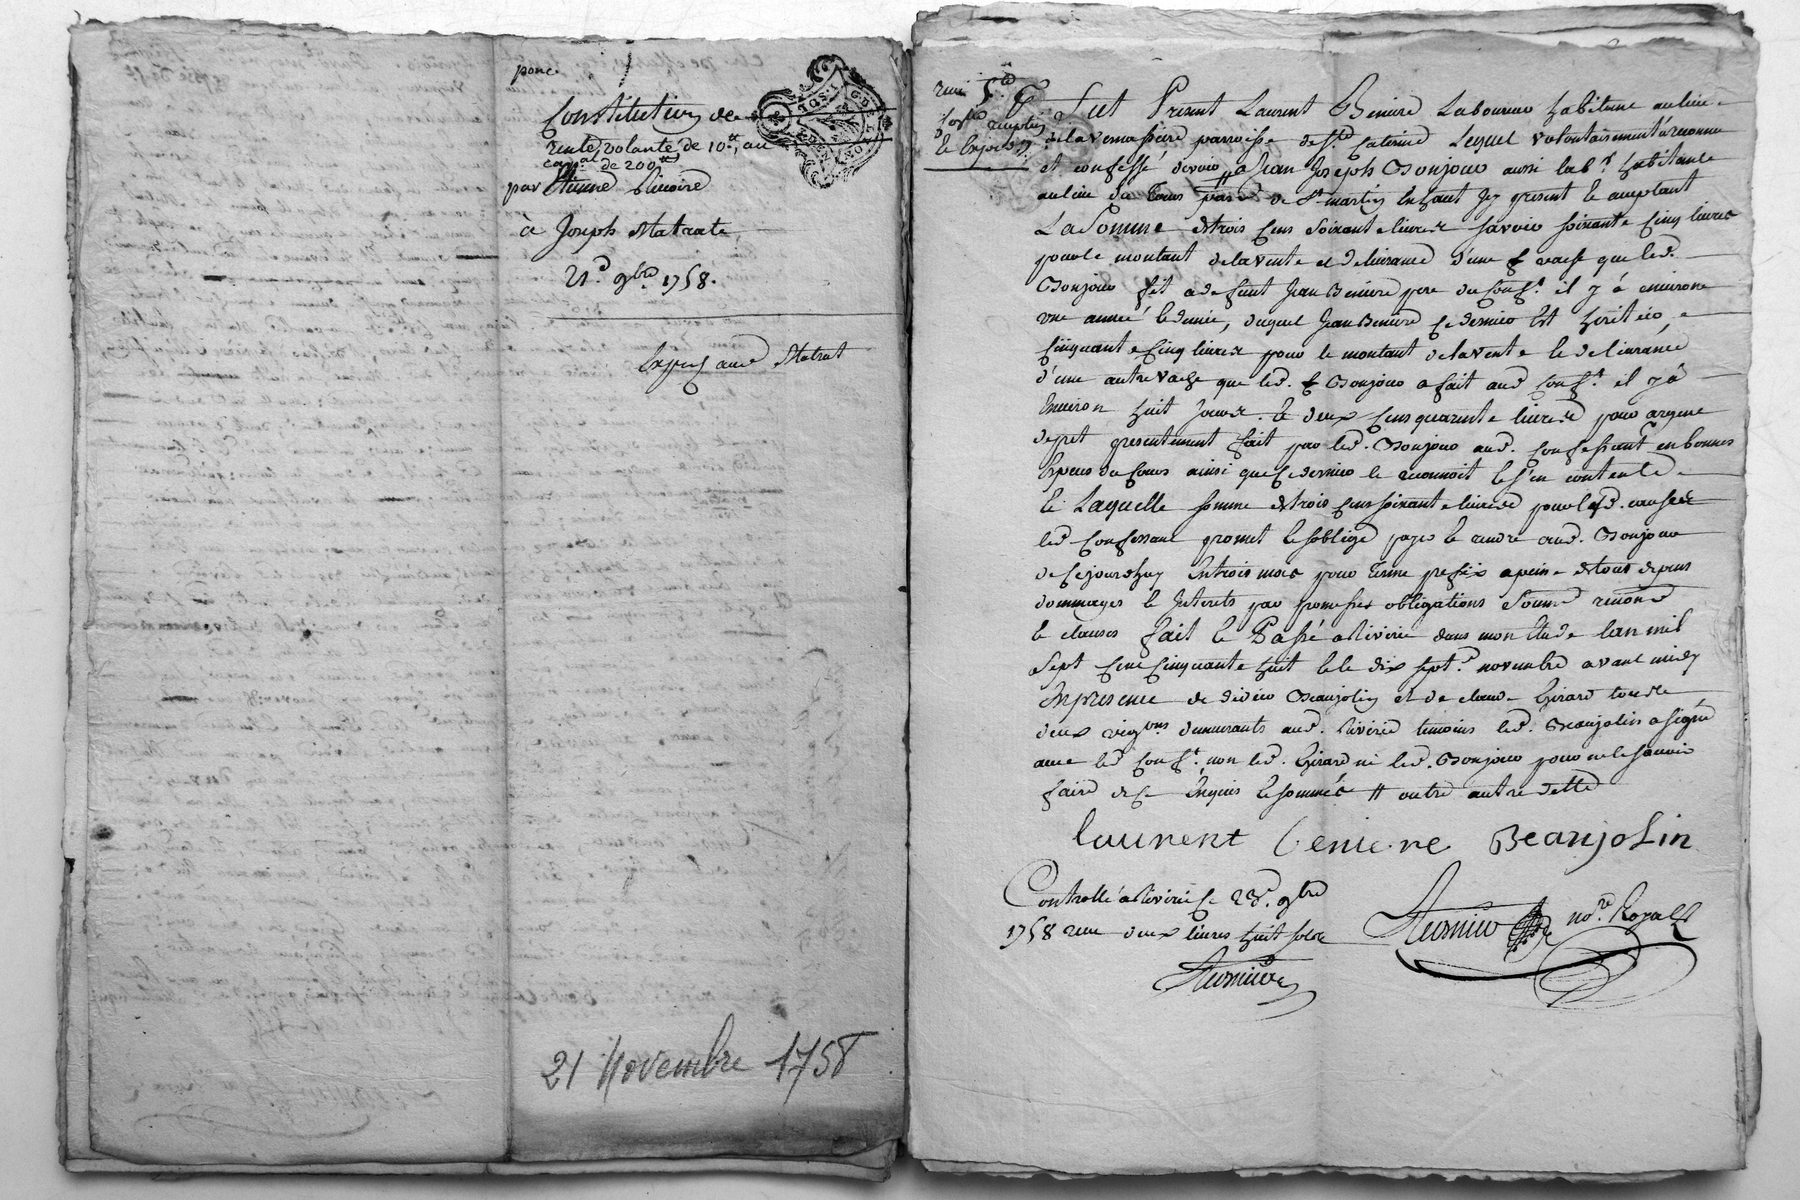 ponc.
Constitution de
rente volante de 10#, au
capal de 200#
par Etienne
à Joseph Matrat
21d 9bre 1758.
Exped aud Matrat
21 Novembre 1758
reçu
Fut Présent Laurent Beniere Laboureur habitant au lieu
de la parroisse de Ste Caterine Lequel volontairement a reconnu
et confessé devoir // a Jean Joseph Bonjour aussi labr habitant
au lieu du parsse de St martin En haut Icy present et acceptant
La Somme de trois Cens Soixante livres savoir soixante Cinq livres
pour le montant de la vente et delivrance d'une vache que led.
Bonjour fit a defunt Jean Beniere pere du Confst. il y á environ
une année et demie, duquel Jean Beniere Ce dernier Est héritier,
Cinquante Cinq livres pour le montant de la vente et délivrance
d'une autre vache que led. Bonjour a fait aud Confst. il y á
Environ huit Jours. Et deux Cens quarente livres pour argent
de pret presentement fait par led. Bonjour aud. Confessant en bonnes
Especes du Cours ainsi que Ce dernier le reconnoit et s'en contente
Et Laquelle somme de trois Cens soixante livres pour lesd. causes
led Confessant promet et s'oblige payer et rendre aud. Bonjour
de Cejourdhuy En trois mois pour terme prefix a peine de tous depens
dommages et Interets par promesses obligations Soumns renons
et clauses fait et Passé a Riverie dans mon Etude l'an mil
Sept Cens Cinquante huit et le dix sept.e novembre avant midy
En presence de didier Beaujolin et de claude Girard tous
deux vignons demeurants aud. Riverie temoins led. Beaujolin a signé
avec led Confst. non led. Girard ni led. Bonjour pour ne le savoir
faire de Ce Enquis et sommés // outre autre dette
laurent Beniere Beaujolin
Controllé a Riverie Ce 23e. 9bre
1758 reçu deux livres huit sols
nore Royal